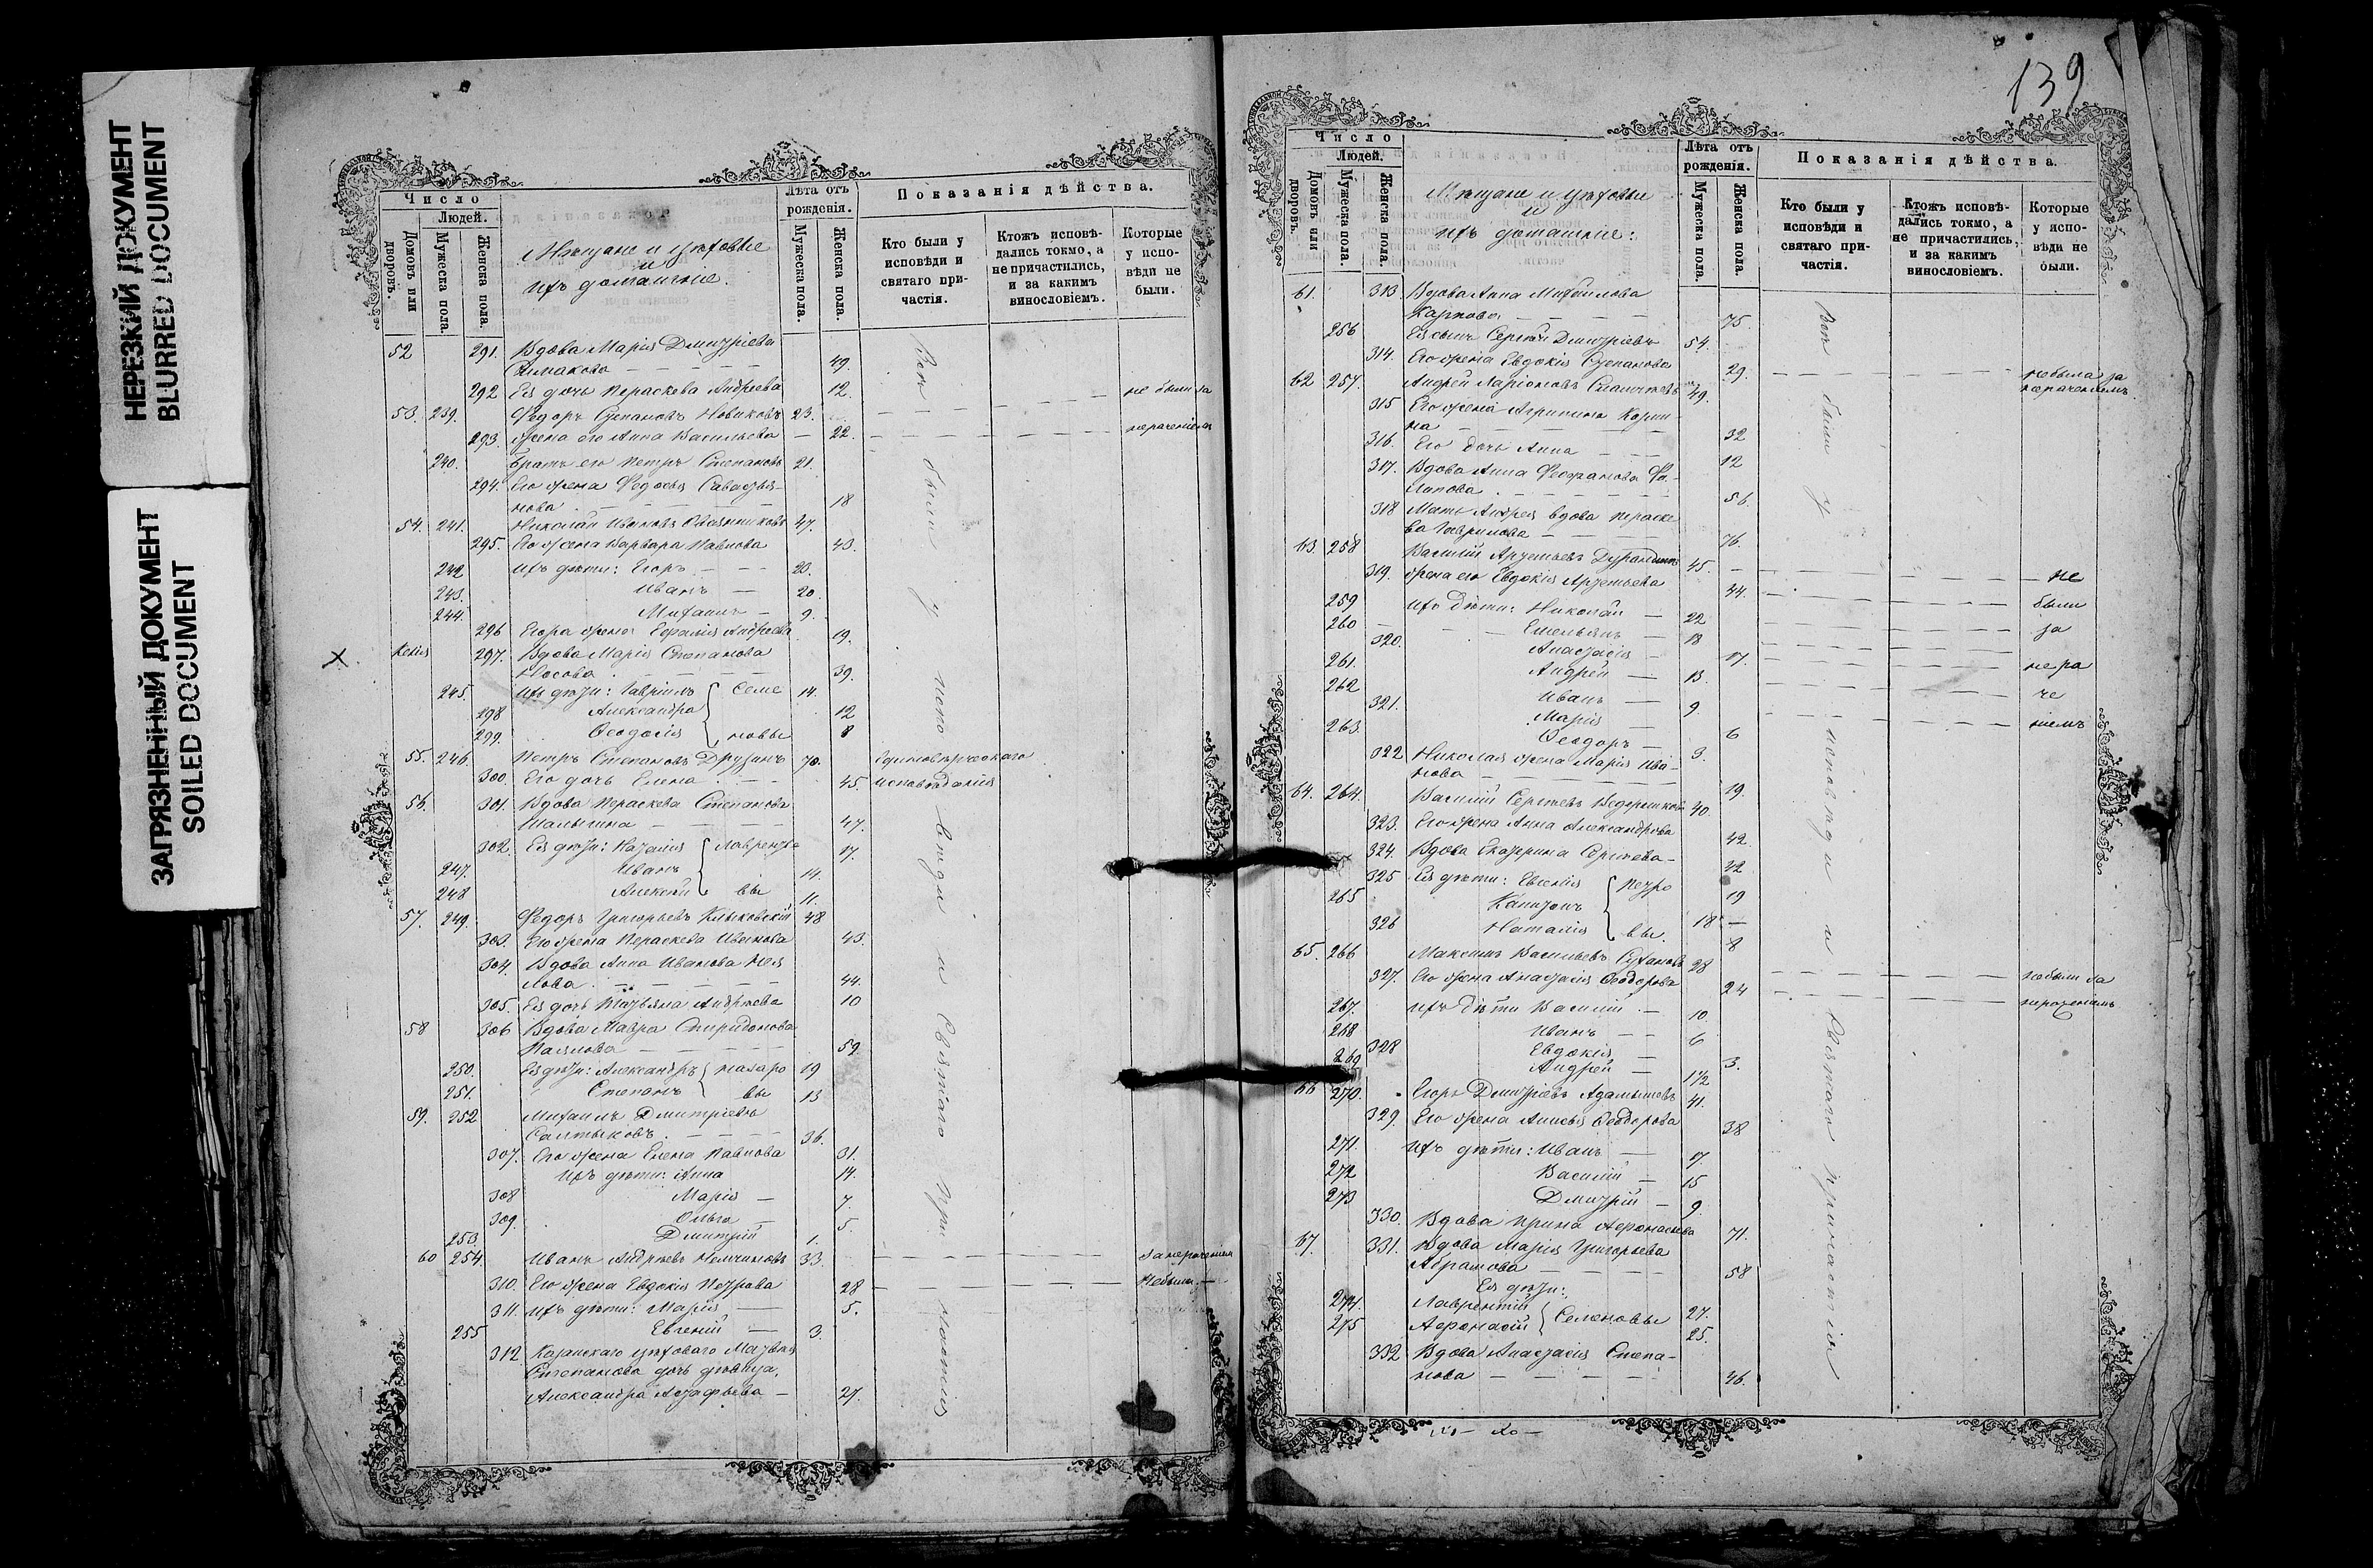 НЕРЕЗКИЙ ДОКУМЕНТ
BLURRED DOCUMENT
ЗАГРЯЗНЕННЫЙ ДОКУМЕНТ
SOILED DOCUMENT
Число
Людей.
Домовъ или дворовъ.
Мужеска пола.
Женска пола.
Мѣщане и цѣховые
и
ихъ домашніе.
Лѣта отъ рожденія.
Мужеска пола.
Женска пола.
Показанія дѣйства.
Кто были у исповѣди и святаго причастія.
Ктожъ исповѣдались токмо, а не причастились, и за какимъ винословіемъ.
Которые у исповѣди не были.
52 291. Вдова Марія Дмитріева
49.
292 Ея дочь Параскева Андреева 12.
не были за
53. 239. Федоръ Степановъ Новиковъ 23.
293. Жена его Анна Васильева — 22.
нераченіемъ
240. Братъ его Петръ Степановъ 21.
294. Его жена Федосья Савастья-
нова 18
54. 241. Николай Ивановъ 47.
295. Его жена Варвара Павлова 43.
242 Ихъ дѣти: Егоръ 20.
243. Иванъ — 20.
244. Михаилъ — 9.
296 Егора жена Евфалія Андреева 19.
Х. Келія 297. Вдова Марія Степанова
Носова 39.
245. Ихъ дѣти: Гавріилъ Семе 14.
298 Александра 12
299. Ѳеодосія новы 8
55. 246. Петръ Степановъ Друзинъ 70. Единовѣрческаго
300. Его дочь Елена 45. исповѣданія
56. 301. Вдова Параскева Степанова
Шалыгина 47.
302. Ея дѣти: Наталія Лаврентье 17.
247. Иванъ 14.
248 Алексѣй вы 11.
57. 249. Федоръ Григорьевъ Клыковскій 48
303. Его жена Параскева Иванова 43.
304. Вдова Анна Иванова
лова 44.
305. Ея дочь Татьяна Андреева 10
58 306 Вдова Мавра Спиридонова
Павлова 59.
250. Ея дѣти: Александръ Назаро 19
251. Степанъ вы 13
59. 252 Михаилъ Дмитріевъ
Салтыковъ 36.
307. Его жена Елена Павлова 31.
Ихъ дѣти: Анна 14.
308 Марія — 7.
309. Ольга 5.
253 Дмитрій 1.
60 254. Иванъ Андреевъ Немчиновъ 33. за нераченіемъ
310. Его жена Евдокія Петрова 28 — не были —
311. Ихъ дѣти: Марія — 5.
255 Евгеній — 3.
312 Казанскаго цѣховаго Матвѣя
Степанова дочь дѣвица,
Александра Астафьева — 27.
Всѣ были у исповѣди и Святаго Причастія
139
Число
Людей.
Домовъ или дворовъ.
Мужеска пола.
Женска пола.
Мѣщане и цѣховые
и
ихъ домашніе:
Лѣта отъ рожденія.
Мужеска пола.
Женска пола.
Показанія дѣйства.
Кто были у исповѣди и святаго причастія.
Ктожъ исповѣдались токмо, а не причастились, и за какимъ винословіемъ.
Которые у исповѣди не были.
61. 313 Вдова Анна Михайлова
Карпова 75.
256 Ея сынъ Сергѣй Дмитріевъ 54.
314. Его жена Евдокія Степанова 29. не была за
62 257. Андрей Ларіоновъ 49. нераченіемъ.
315 Его жена Агрипина
на 32
316. Его дочь Анна 12
317. Вдова Анна Феофанова Фи-
липова 56.
318 Мать Андрея вдова Параске
ва Гаврилова 76.
63 258 Василій Артемьевъ 45. не
319. Жена его Евдокія Артемьева 44. были
259 Ихъ дѣти: Николай — 22 за
260 Емельянъ — 18
320. Анастасія 17. нера
261. Андрей — 13. че
262 Иванъ — 9. ніемъ
321. Марія — 6
263. Ѳеодоръ — 3.
322 Николая жена Марія Ива-
нова 19.
64. 264. Василій Сергѣевъ 40.
323. Его жена Анна Александрова 42.
324. Вдова Екатерина Сергѣева — 42
325 Ея дѣти: Евгенія Петро 19
265 Капитонъ 18 —
326 Наталія вы. 8
65. 266 Максимъ Васильевъ Сухановъ 28
327. Его жена Анастасія Ѳеодорова 24 не были за
267. Ихъ дѣти Василій — 10. нераченіемъ
268 Иванъ — 6
328 Евдокія — 3.
269 Андрей — 1½
66 270. Егоръ Дмитріевъ 41.
329. Его жена Анисья Ѳеодорова 38
271. Ихъ дѣти: Иванъ — 17.
272 Василій — 15
273 Дмитрій — 9
330. Вдова Ирина Афонасьева 71.
67. 331. Вдова Марія Григорьева
Абрамова 58
Ея дѣти:
274. Лаврентій Семеновы 27.
275 Афонасій 25.
332 Вдова Анастасія Степа-
нова 46.
Всѣ были у исповѣди и Святаго причастія